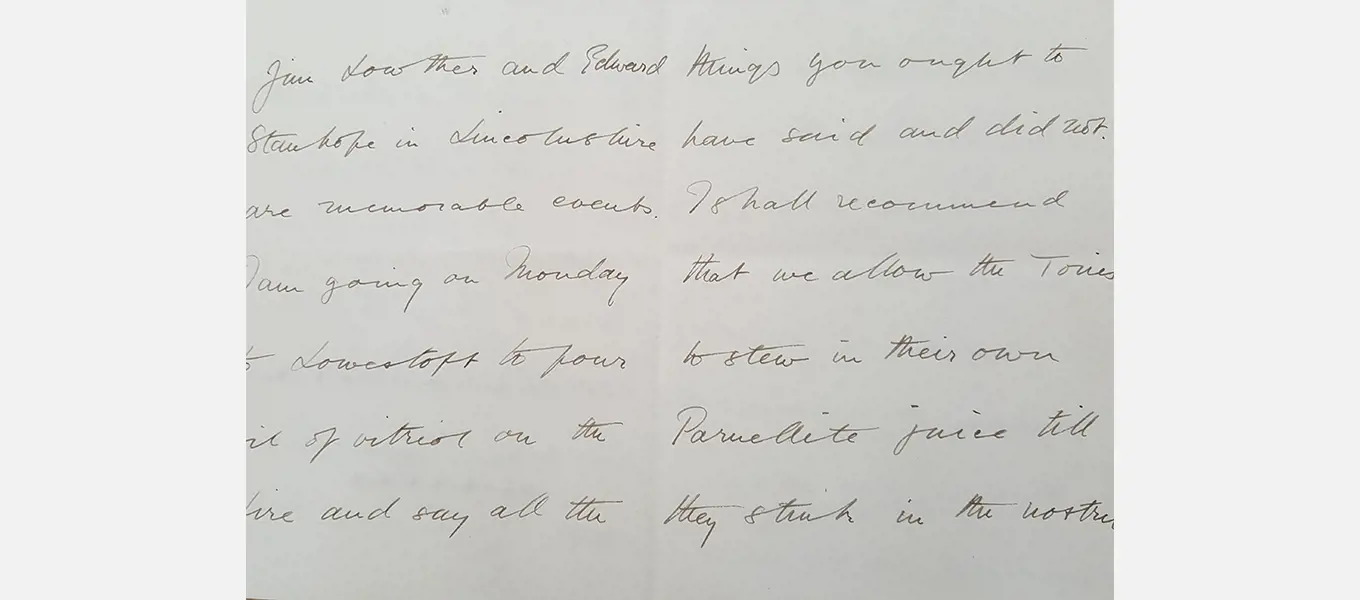 Jim Lowther and Edward
Stanhope in Lincolnshire
are memorable events.
I am going on Monday
to Lowestoft to pour
oil of vitriol on the
fire and say all the
things you ought to
have said and did not.
I shall recommend
that we allow the Tories
to stew in their own
Parnellite juice till
they stink in the nostri